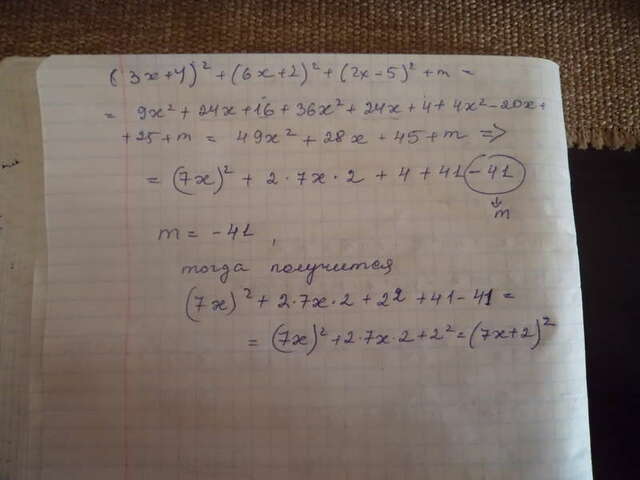 (3x+4)² + (6x+2)² + (2x-5)² + m =
= 9x² + 24x + 16 + 36x² + 24x + 4 + 4x² - 20x +
+ 25 + m = 49x² + 28x + 45 + m =>
= (7x)² + 2·7x·2 + 4 + 41 - 41
m
m = -41,
тогда получится
(7x)² + 2·7x·2 + 2² + 41 - 41 =
= (7x)² + 2·7x·2 + 2² = (7x+2)²